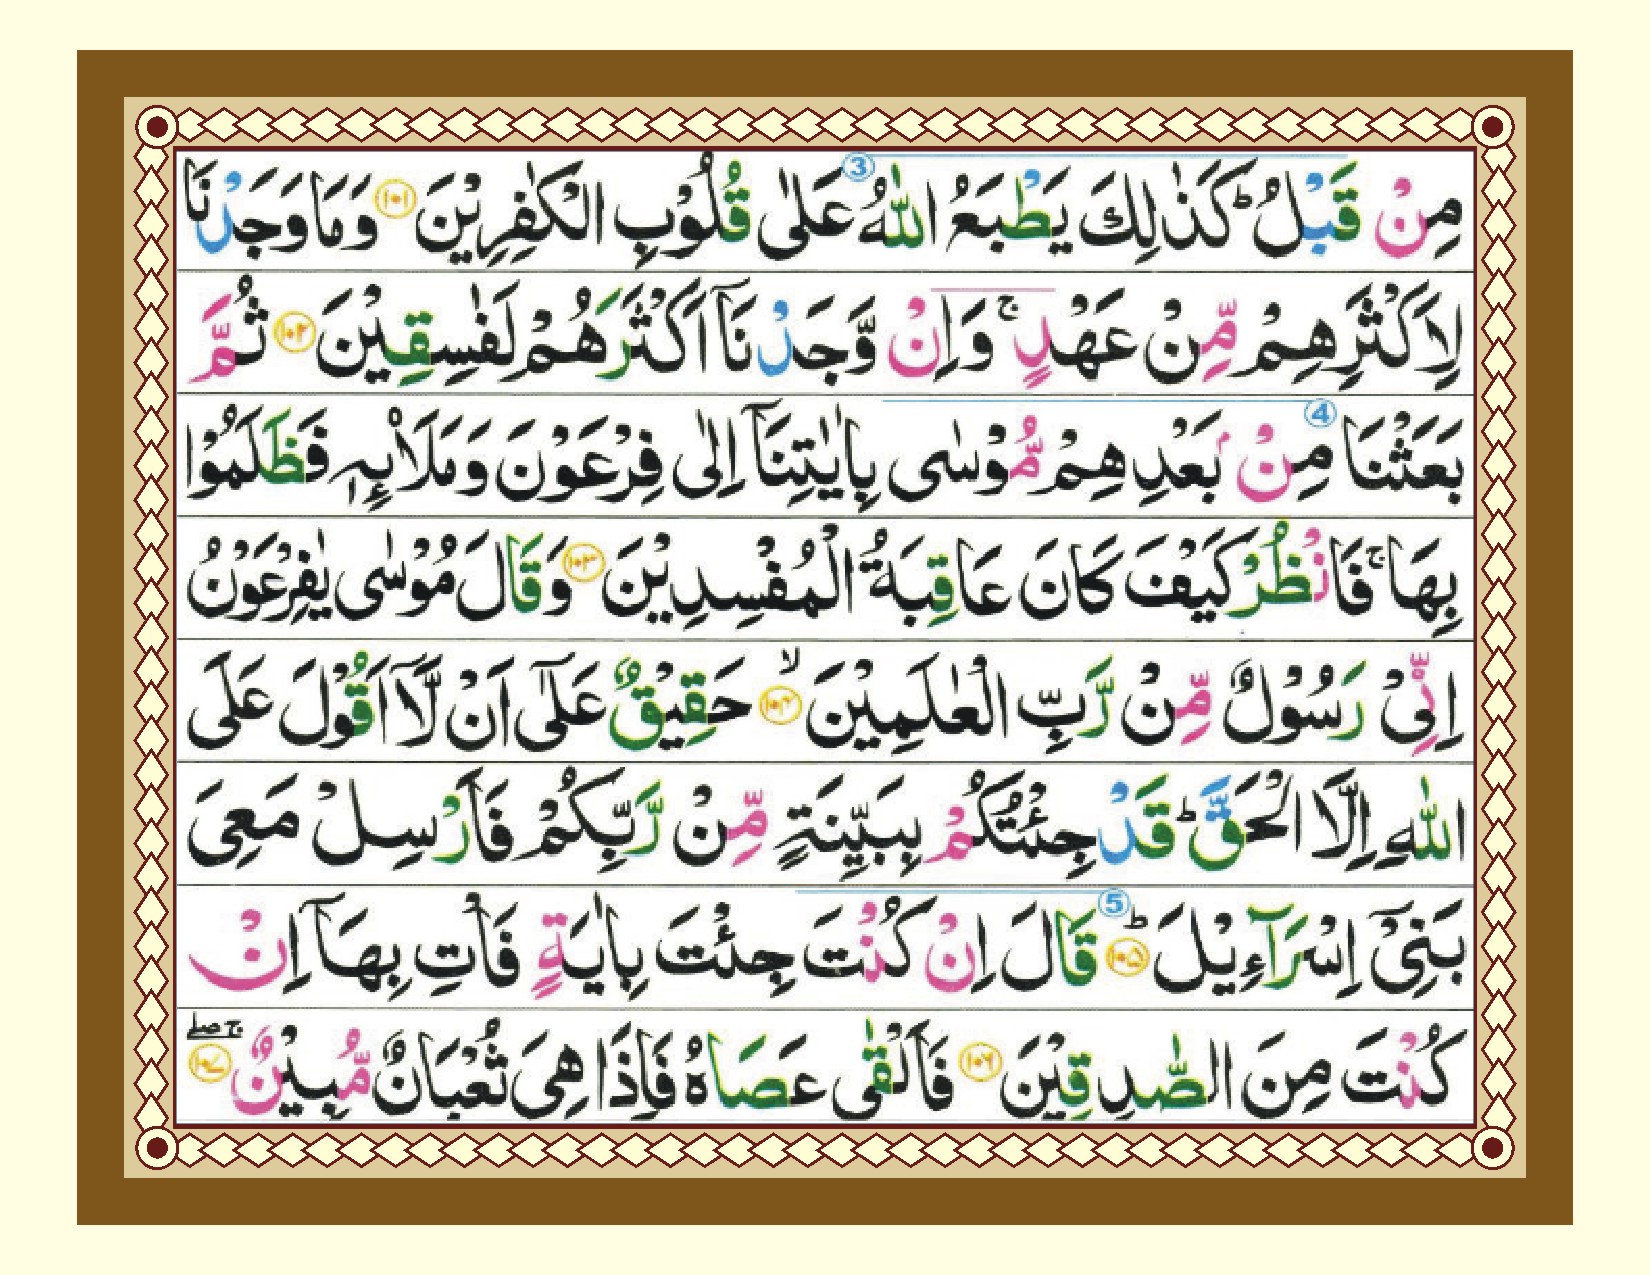 مِنْ قَبْلُ ؕ كَذٰلِكَ يَطْبَعُ اللّٰهُ عَلٰى ③ قُلُوْبِ الْكٰفِرِيْنَ ۝۱۰۱ وَمَا وَجَدْنَا
لِاَكْثَرِهِمْ مِّنْ عَهْدٍ ۚ وَاِنْ وَّجَدْنَاۤ اَكْثَرَهُمْ لَفٰسِقِيْنَ ۝۱۰۲ ثُمَّ
بَعَثْنَا ④ مِنْۢ بَعْدِهِمْ مُّوْسٰى بِاٰيٰتِنَاۤ اِلٰى فِرْعَوْنَ وَمَلَا۟ئِهٖ فَظَلَمُوْا
بِهَا ۚ فَانْظُرْ كَيْفَ كَانَ عَاقِبَةُ الْمُفْسِدِيْنَ ۝۱۰۳ وَقَالَ مُوْسٰى يٰفِرْعَوْنُ
اِنِّيْ رَسُوْلٌ مِّنْ رَّبِّ الْعٰلَمِيْنَ ۝۱۰۴ۙ حَقِيْقٌ عَلٰۤى اَنْ لَّاۤ اَقُوْلَ عَلَى
اللّٰهِ اِلَّا الْحَقَّ ؕ قَدْ جِئْتُكُمْ بِبَيِّنَةٍ مِّنْ رَّبِّكُمْ فَاَرْسِلْ مَعِيَ
بَنِيْۤ اِسْرَآءِيْلَ ۝۱۰۵ؕ ⑤ قَالَ اِنْ كُنْتَ جِئْتَ بِاٰيَةٍ فَاْتِ بِهَاۤ اِنْ
كُنْتَ مِنَ الصّٰدِقِيْنَ ۝۱۰۶ فَاَلْقٰى عَصَاهُ فَاِذَا هِيَ ثُعْبَانٌ مُّبِيْنٌ ۝۱۰۷ۚۖ